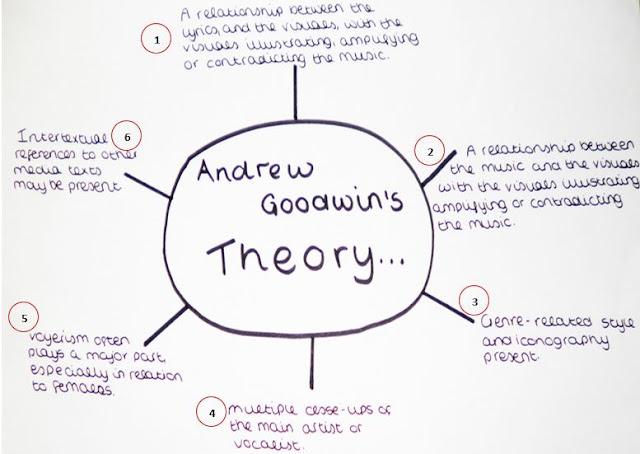 Andrew
Goodwin's
Theory...
1
A relationship between the
lyrics, and the visuals, with the
visuals illustrating, amplifying
or contradicting the music.
2
A relationship between
the music and the visuals
with the visuals illustrating
amplifying or contradicting
the music.
3
Genre-related style
and iconography
present.
4
multiple close-ups of
the main artist or
vocalist.
5
voyerism often
plays a major part,
especially in relation
to females.
6
Intertextual
references to other
media texts
may be present